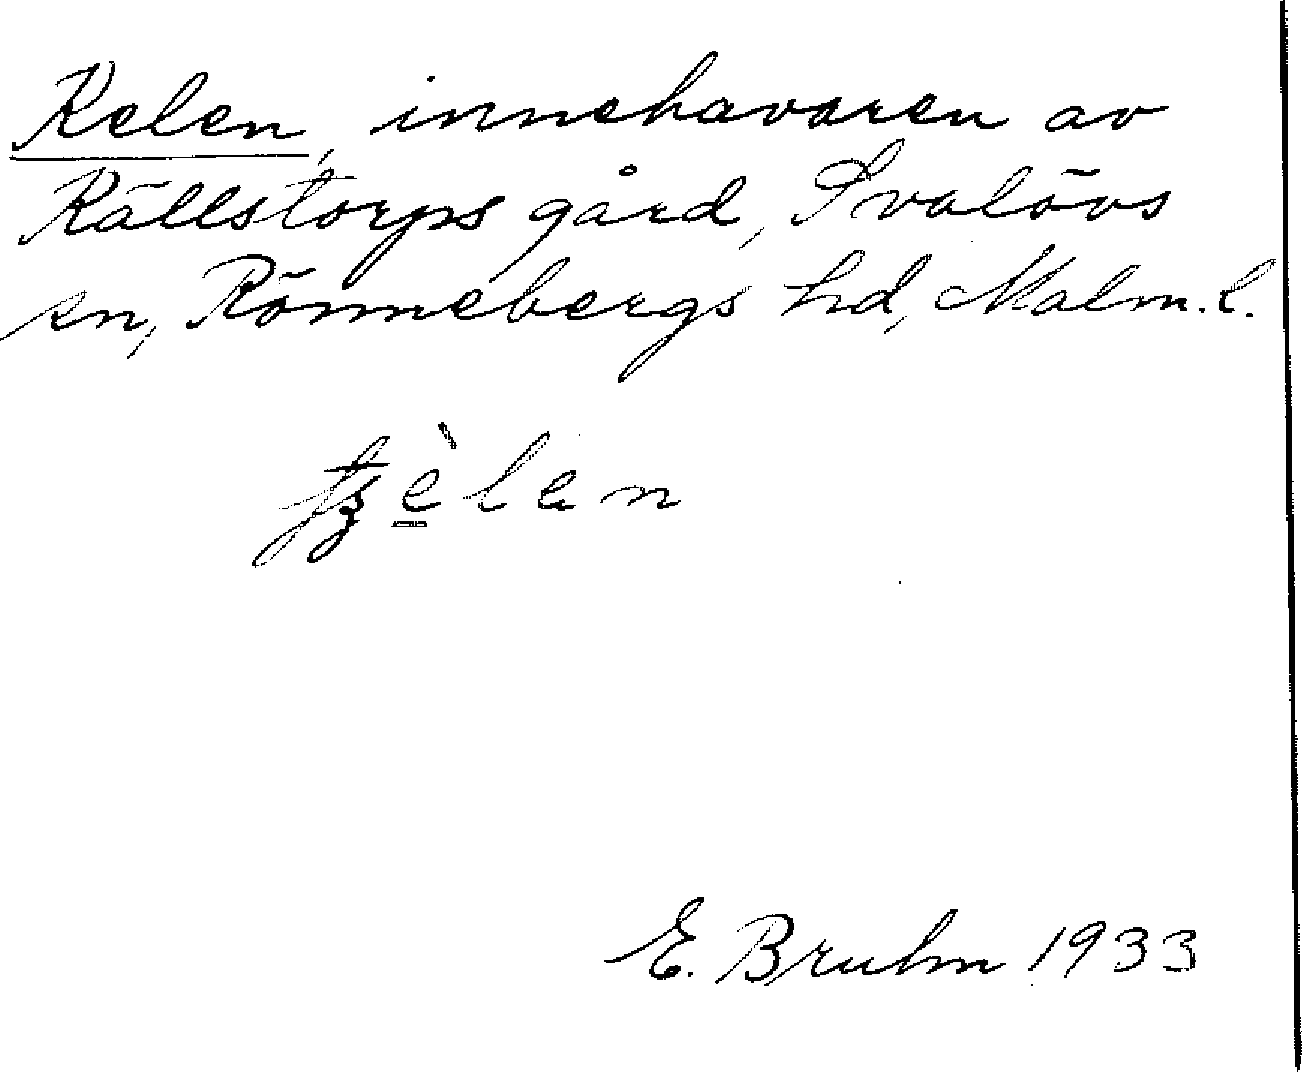 Kelen, innehavaren av
Källstorps gård, Svalövs
sn, Rönnebergs hd, Malm. l.
E. Bruhn 1933